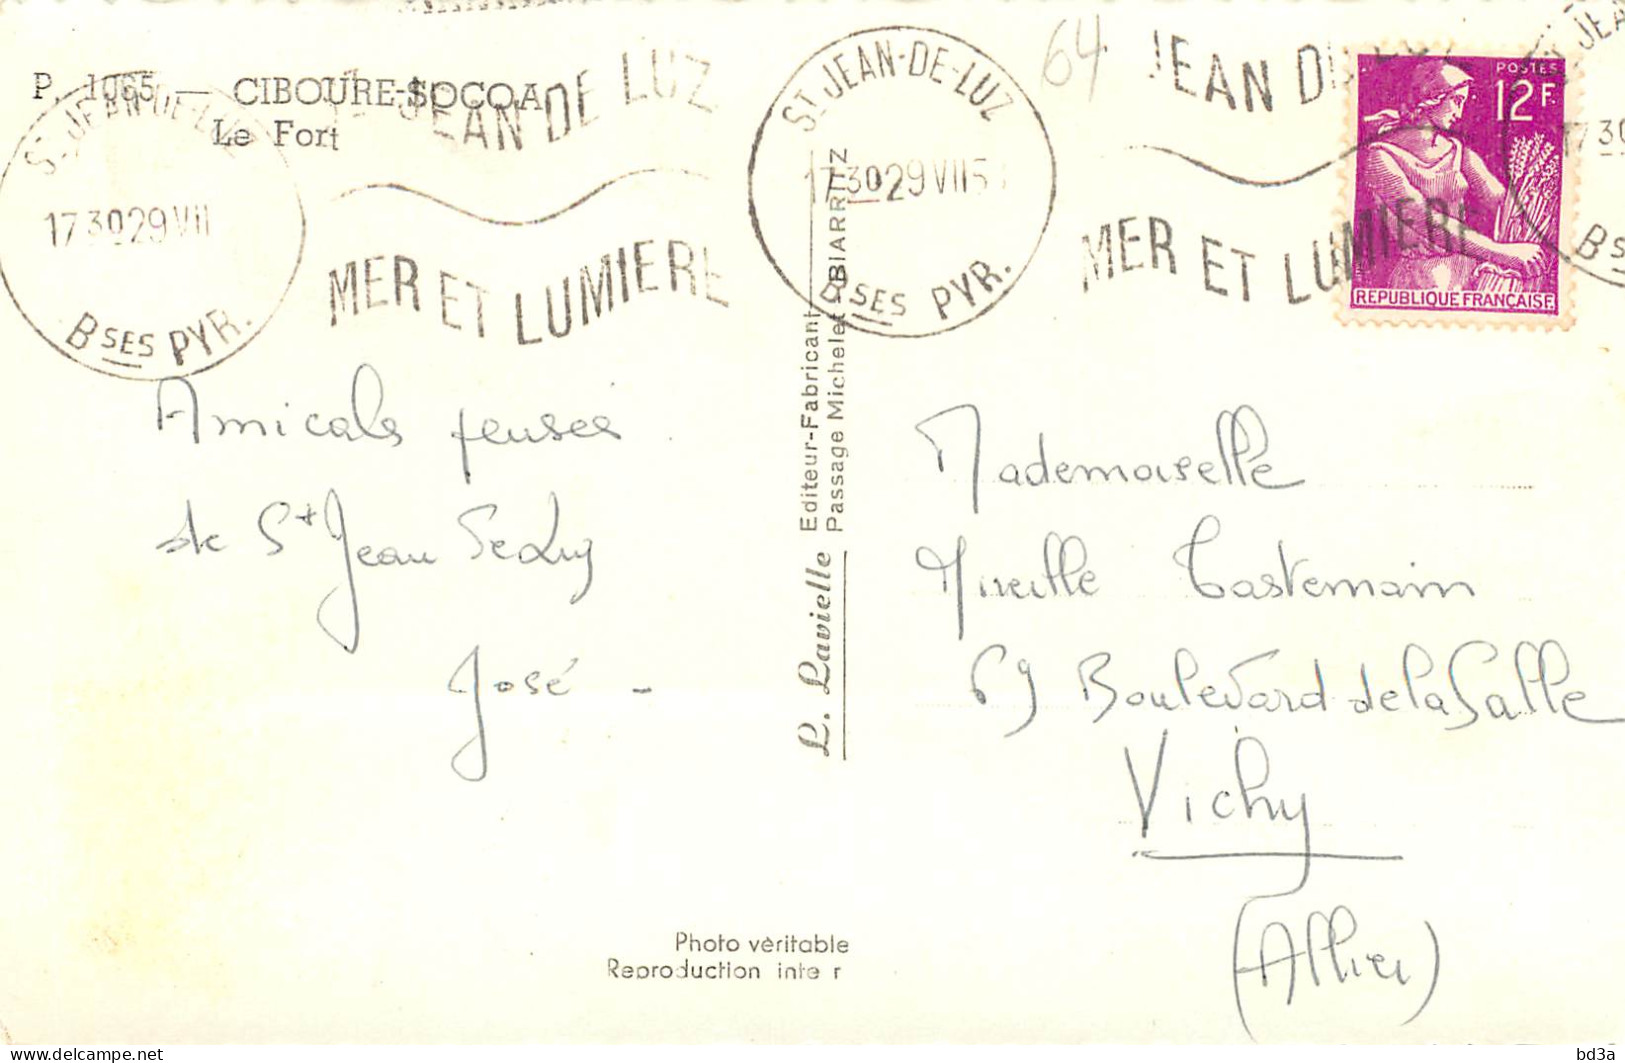 P. 1065 — CIBOURE-SOCOA
Le Fort
ST JEAN-DE-LUZ
17 30 29 VII
BSES PYR.
JEAN DE LUZ
MER ET LUMIERE
ST JEAN-DE-LUZ
17 30 29 VII 5
BSES PYR.
64
JEAN DE
MER ET LUMIERE
POSTES
12F.
REPUBLIQUE FRANÇAISE
ST JEA
17 30
BSES
Amicales pensées
de St Jean de Luz
José -
L. Lavielle Editeur-Fabricant
Passage Michelet BIARRITZ
Mademoiselle
Mireille Tastemain
69 Boulevard de la Salle
Vichy
(Allier)
Photo véritable
Reproduction inter
bd3a